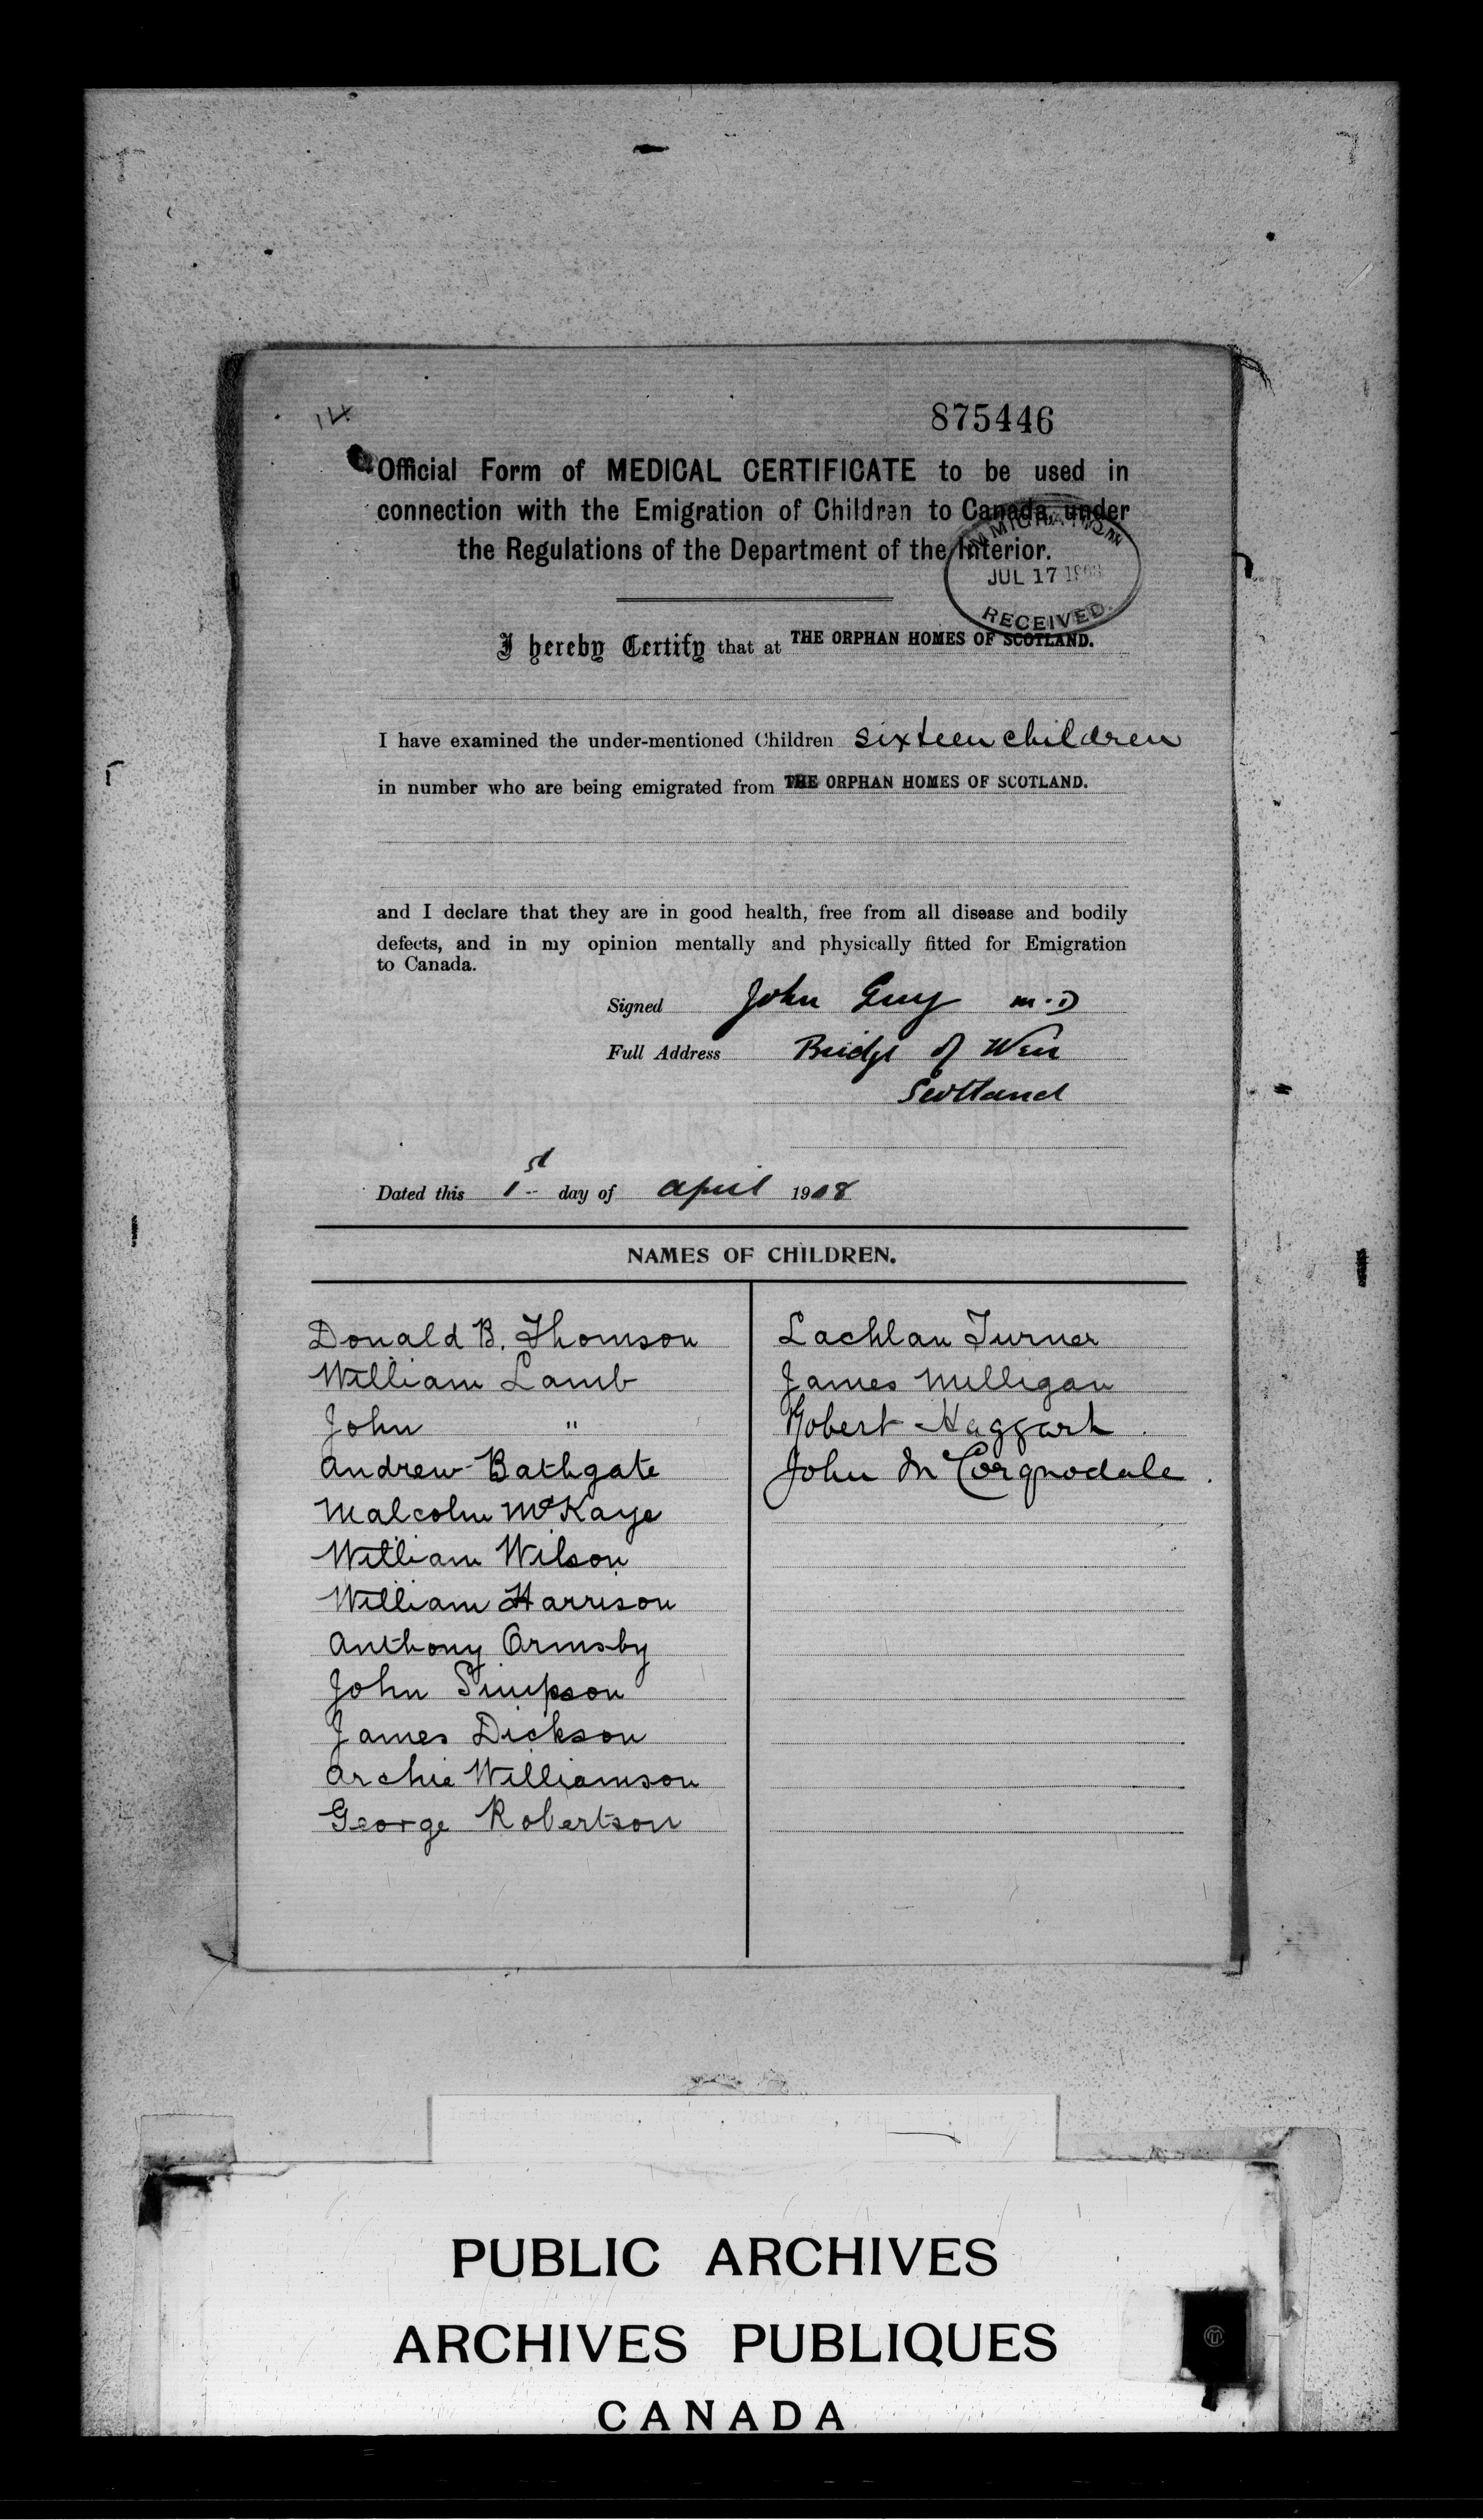 875446
Official Form of MEDICAL CERTIFICATE to be used in
connection with the Emigration of Children to Canada, under
the Regulations of the Department of the Interior.
IMMIGRATION
JUL 17 1908
RECEIVED.
I hereby Certify that at THE ORPHAN HOMES OF SCOTLAND.
I have examined the under-mentioned Children sixteen children
in number who are being emigrated from THE ORPHAN HOMES OF SCOTLAND.
and I declare that they are in good health, free from all disease and bodily
defects, and in my opinion mentally and physically fitted for Emigration
to Canada.
Signed John Guy M.D
Full Address Bridge of Weir
Scotland
Dated this 1st day of April 1908
NAMES OF CHILDREN.
Donald B. Thomson
William Lamb
John "
Andrew Bathgate
Malcolm McKaye
William Wilson
William Harrison
Anthony Ormsby
John Simpson
James Dickson
Archie Williamson
George Robertson
Lachlan Turner
James Milligan
Robert Haggart
John McCorquodale
PUBLIC ARCHIVES
ARCHIVES PUBLIQUES
CANADA